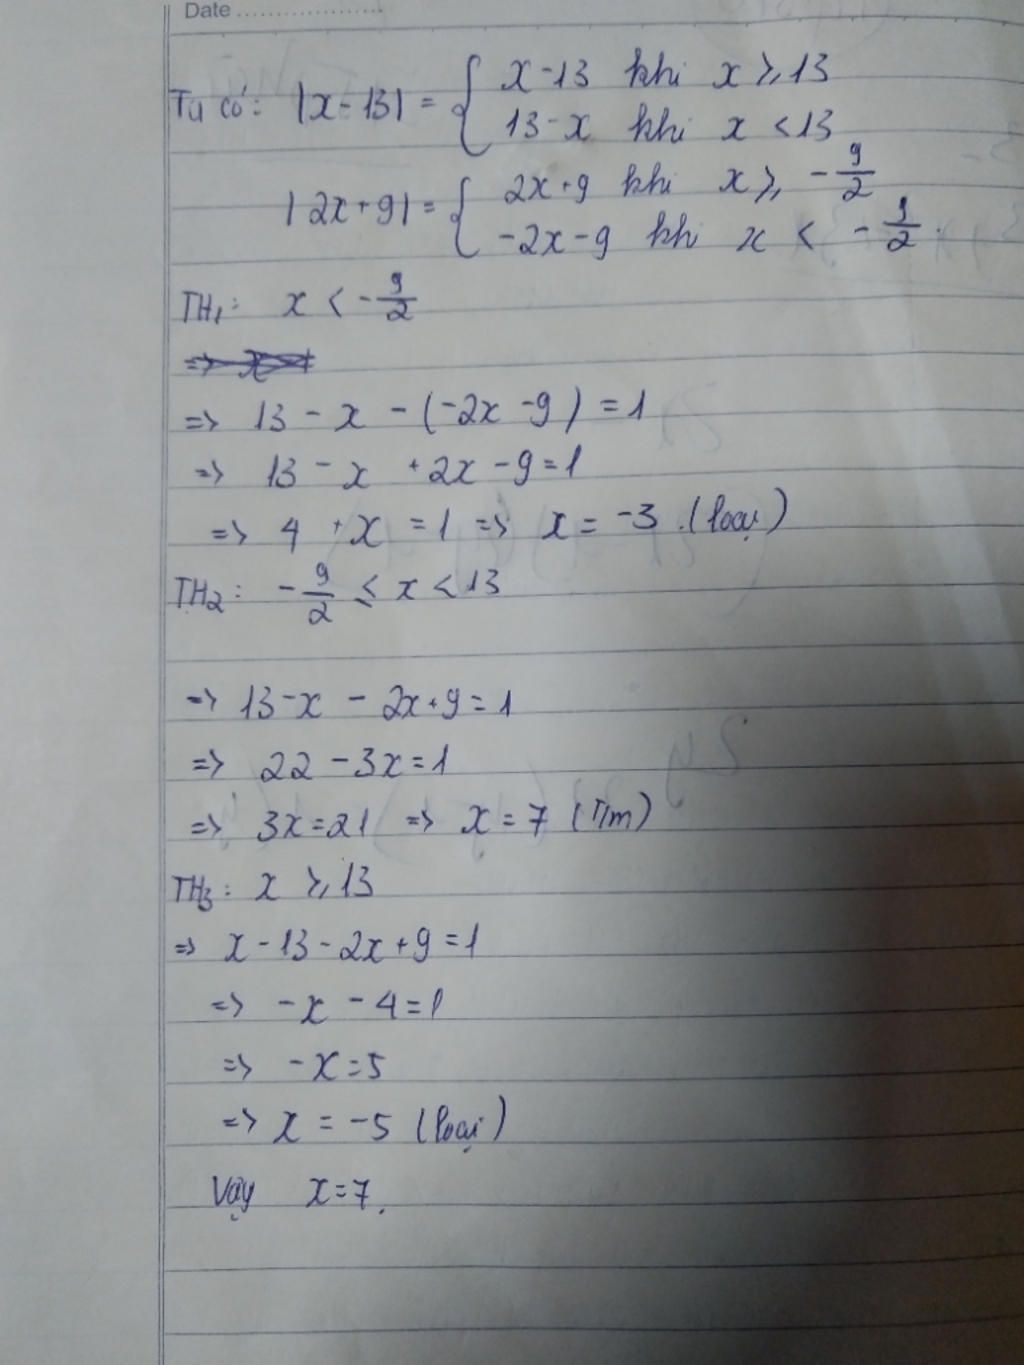 Date ....................
Ta có: |x - 13| = { x - 13 khi x ≥ 13
13 - x khi x < 13
|2x + 9| = { 2x + 9 khi x ≥ - 9/2
-2x - 9 khi x < - 9/2.
TH1: x < - 9/2
=> 13 - x - (-2x - 9) = 1
=> 13 - x + 2x - 9 = 1
=> 4 + x = 1 => x = -3. (loại)
TH2: - 9/2 ≤ x < 13
=> 13 - x - 2x + 9 = 1
=> 22 - 3x = 1
=> 3x = 21 => x = 7 (T/m)
TH3: x ≥ 13
=> x - 13 - 2x + 9 = 1
=> -x - 4 = 1
=> -x = 5
=> x = -5 (loại)
Vậy x = 7.